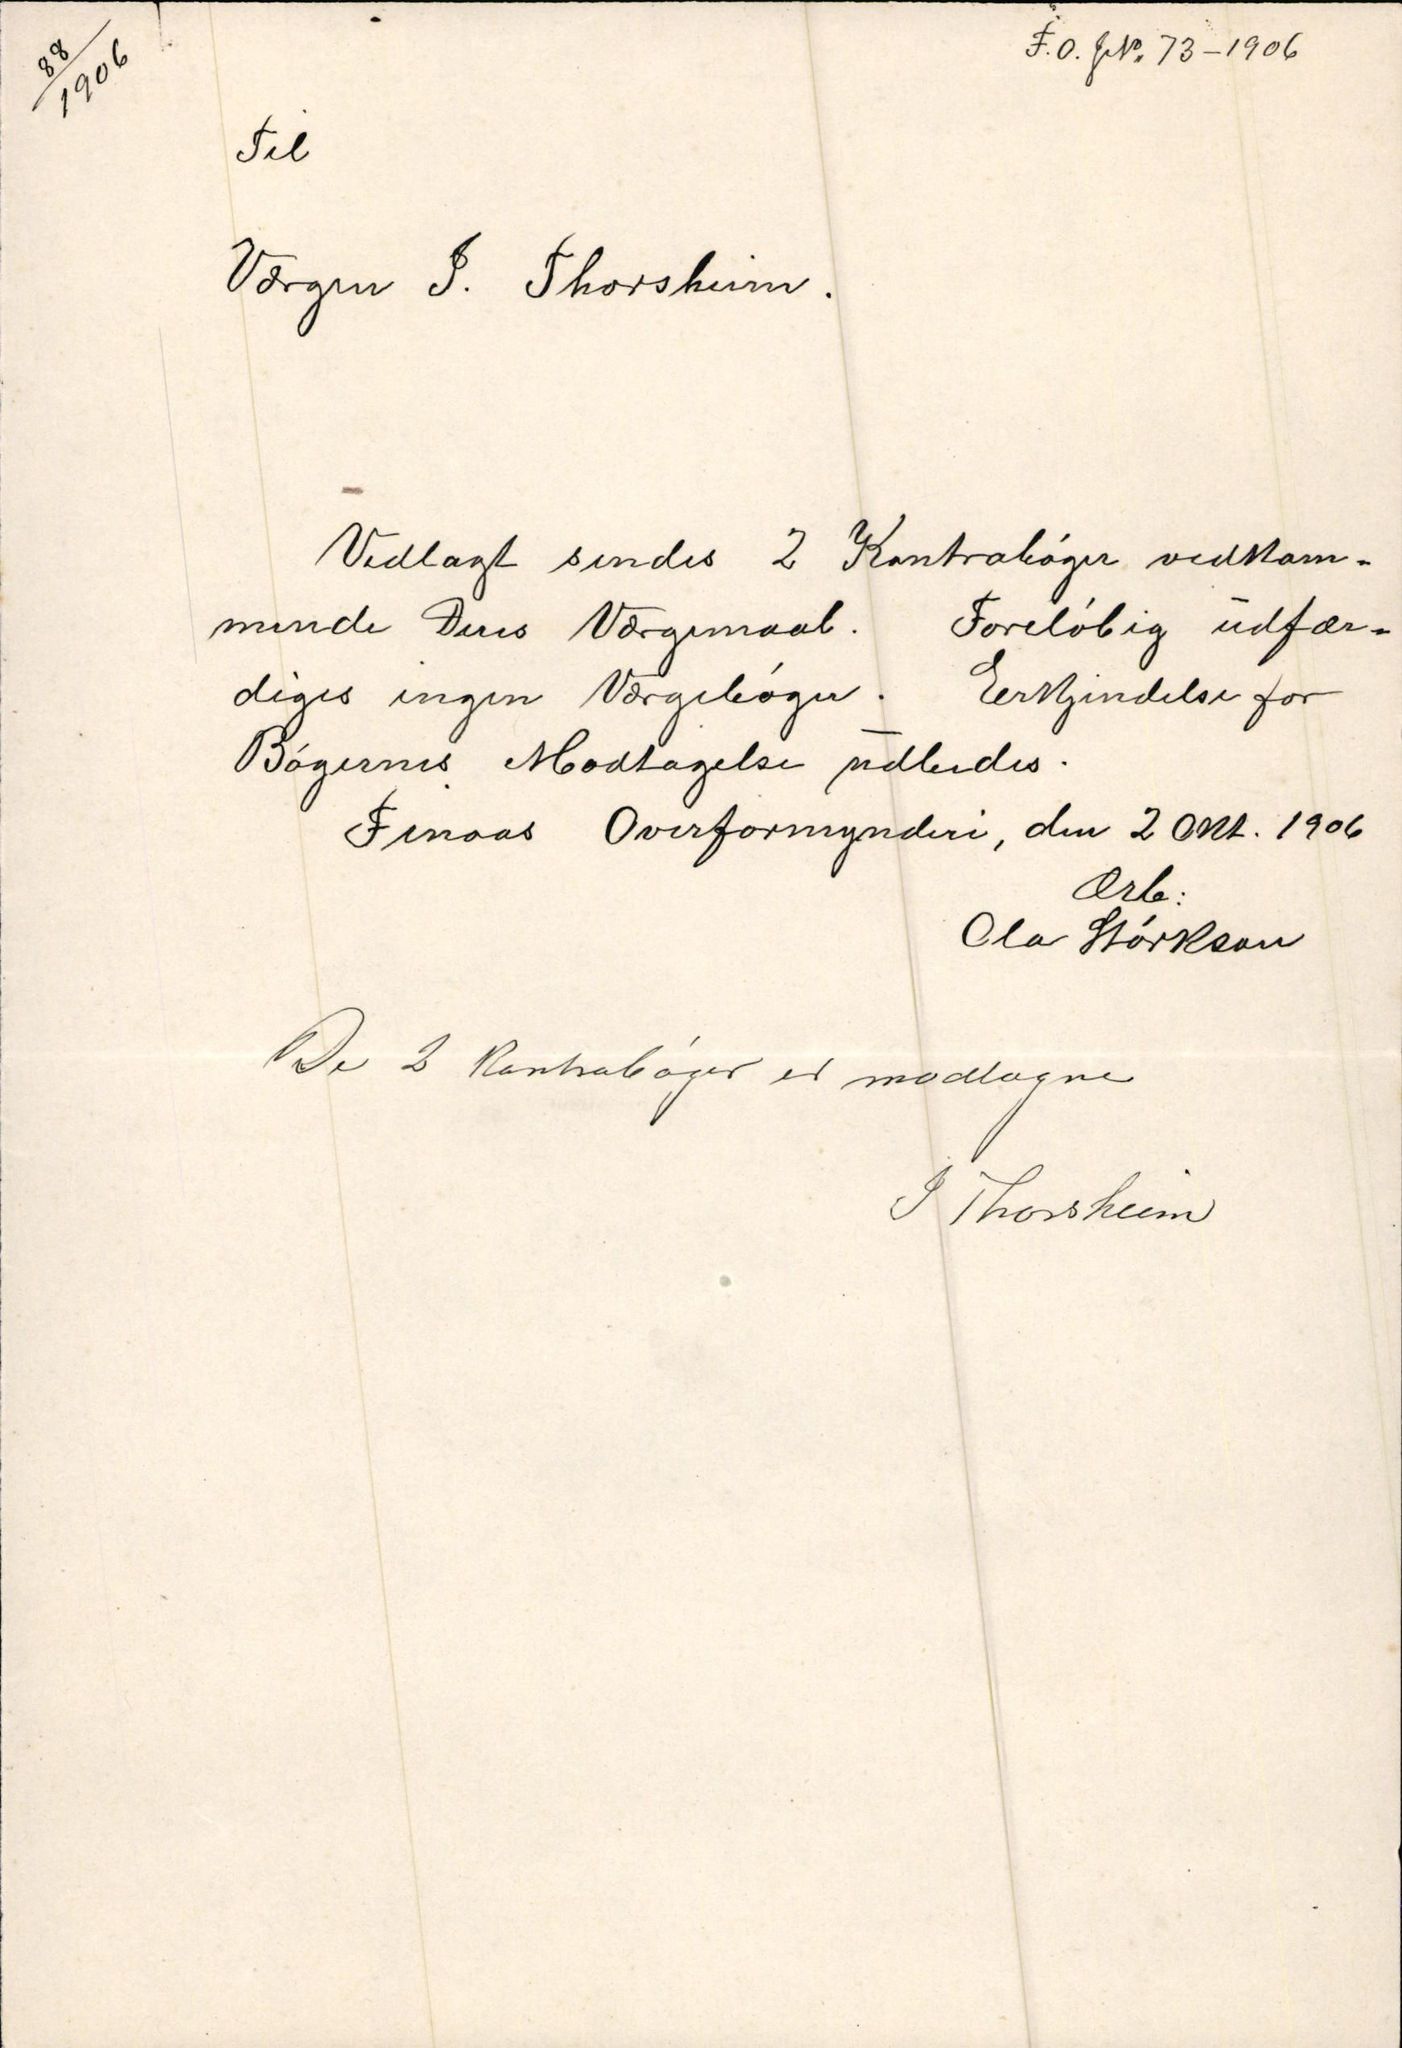 88/1906
F. O. JNo. 73-1906
Til
Værgen J. Thorsheim.
Vedlagt sendes 2 Kontrabóger vedkom-
mende Deres Værgemaal. Forelóbig udfær-
diges ingen Værgebóger. Erkjendelse for
Bógernes Modtagelse udbedes.
Finaas Overformynderi, den 2 Okt. 1906
Ærb:
Ola Stórkson
De 2 Kontrabóger er modtagne
J Thorsheim